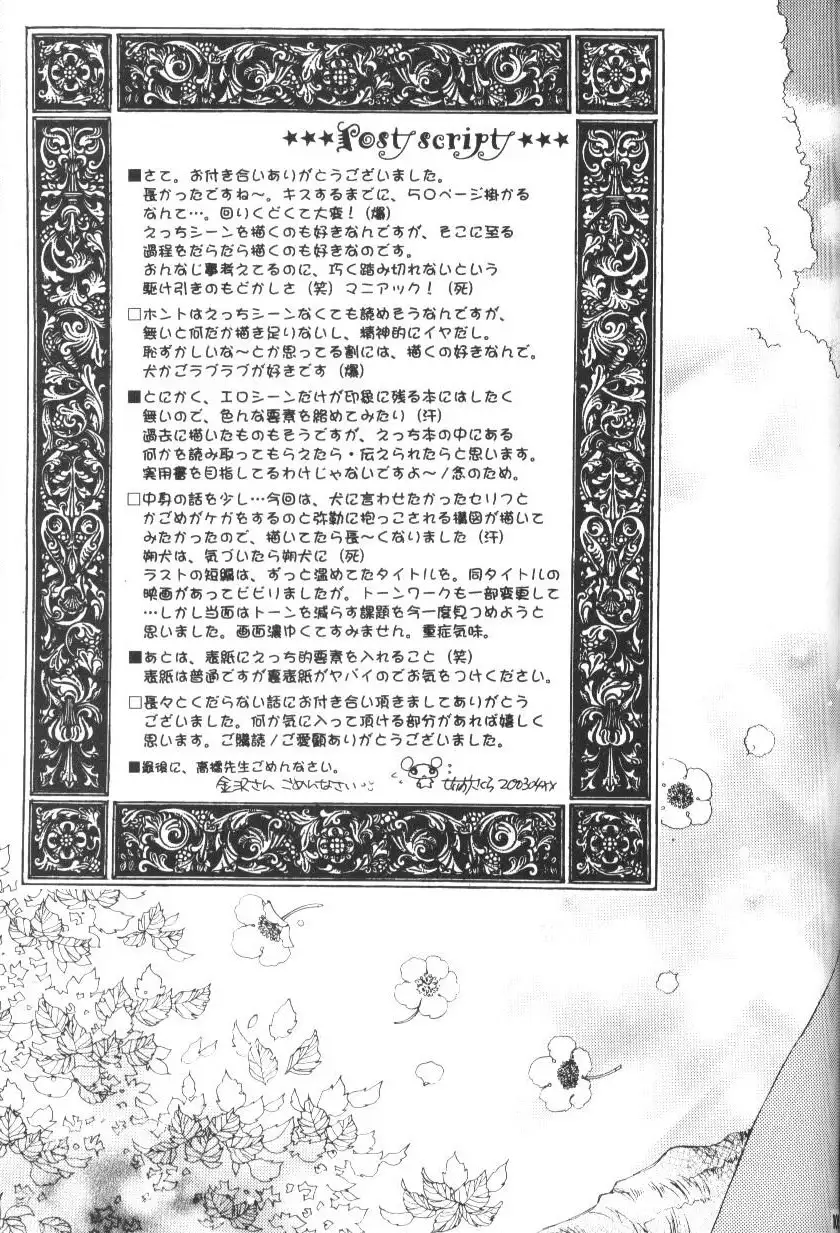 ★★★Post script★★★
■さて。お付き合いありがとうございました。
長かったですね〜。キスするまでに、50ページ掛かる
なんて…。回りくどくて大変！(爆)
えっちシーンを描くのも好きなんですが、そこに至る
過程をだらだら描くのも好きなのです。
おんなじ事考えてるのに、巧く踏み切れないという
駆け引きのもどかしさ (笑) マニアック！ (死)
□ホントはえっちシーンなくても読めそうなんですが、
無いと何だか描き足りないし、精神的にイヤだし。
恥ずかしいな〜とか思ってる割には、描くの好きなんで。
犬かごラブラブが好きです (爆)
■とにかく、エロシーンだけが印象に残る本にはしたく
無いので、色んな要素を絡めてみたり (汗)
過去に描いたものもそうですが、えっち本の中にある
何かを読み取ってもらえたら・伝えられたらと思います。
実用書を目指してるわけじゃないですよ〜！念のため。
□中身の話を少し…今回は、犬に言わせたかったセリフと
かごめがケガをするのと弥勒に抱っこされる構図が描いて
みたかったので、描いてたら長〜くなりました (汗)
朔犬は、気づいたら朔犬に (死)
ラストの短編は、ずっと温めてたタイトルを。同タイトルの
映画があってビビりましたが。トーンワークも一部変更して
…しかし当面はトーンを減らす課題を今一度見つめようと
思いました。画面濃ゆくてすみません。重症気味。
■あとは、表紙にえっち的要素を入れること (笑)
表紙は普通ですが裏表紙がヤバイのでお気をつけください。
□長々とくだらない話にお付き合い頂きましてありがとう
ございました。何か気に入って頂ける部分があれば嬉しく
思います。ご購読！ご愛顧ありがとうございました。
■最後に、高橋先生ごめんなさい。
金沢さん ごめんなさい